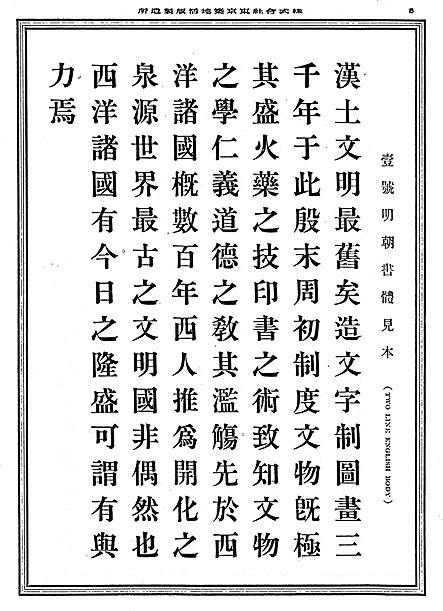 株式會社東京築地活版製造所
壹號明朝書體見本 (TWO LINE ENGLISH BODY)
漢土文明最舊矣造文字制圖畫三
千年于此殷末周初制度文物旣極
其盛火藥之技印書之術致知文物
之學仁義道德之敎其濫觴先於西
洋諸國槪數百年西人推爲開化之
泉源世界最古之文明國非偶然也
西洋諸國有今日之隆盛可謂有與
力焉